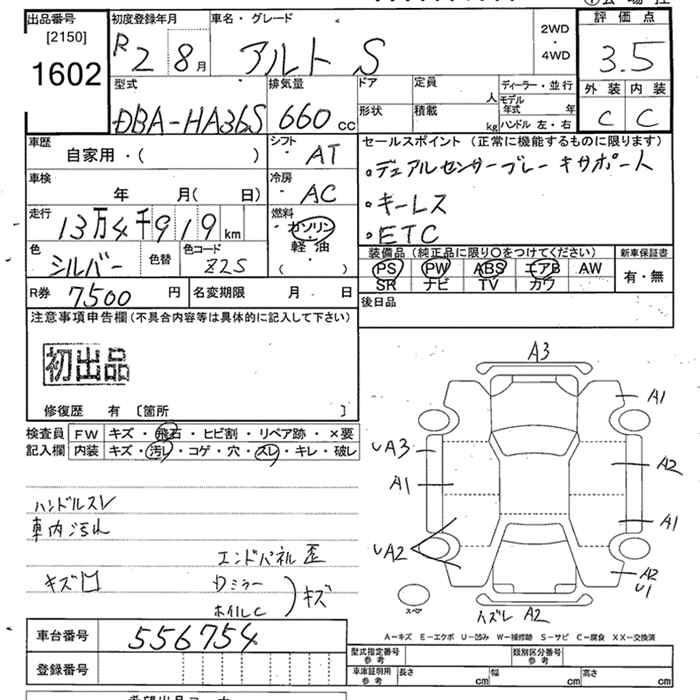 出品番号
[2150]
1602
初度登録年月
R2 8月
車名・グレード
アルト S
2WD
・
4WD
評価点
3.5
外装 内装
C C
型式
DBA-HA36S
排気量
660 cc
ドア
定員
人
形状
積載
kg
ディーラー・並行
モデル年式 年
ハンドル 左・右
車歴
自家用・( )
シフト
・ AT
車検
年 月( 日)
冷房
・ AC
走行
13万4千919 km
燃料
ガソリン
軽油
( )
色
シルバー
色替
色コード
Z2S
R券 7500 円
名変期限 月 日
セールスポイント(正常に機能するものに限ります)
・デュアルセンサーブレーキサポート
・キーレス
・ETC
装備品(純正品に限り○をつけてください)
PS PW ABS エアB AW
SR ナビ TV カワ
新車保証書
有・無
後日品
注意事項申告欄(不具合内容等は具体的に記入して下さい)
初出品
修復歴 有 〔箇所 〕
検査員
記入欄
FW キズ・飛石・ヒビ割・リペア跡・×要
内装 キズ・汚レ・コゲ・穴・スレ・キレ・破レ
ハンドルスレ
車内汚れ
エンドパネル歪
キズ
ホイルC
キズ
A3
A1
UA3
A1
A2
A1
UA2
A2
U1
スペア
ハズレ A2
A－キズ E－エクボ U－凹み W－補修跡 S－サビ C－腐食 XX－交換済
車台番号 556754
登録番号
型式指定番号
参考
類別区分番号
参考
車庫証明用
参考
長さ cm
幅 cm
高さ cm